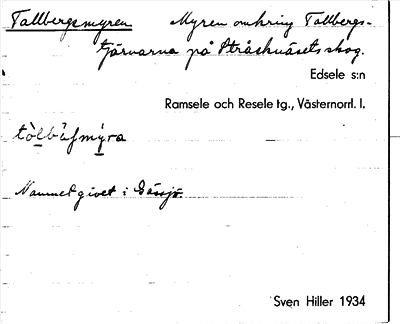 Tallbergsmyren Myren omkring Tallbergs-
tjärnarna på Stråsknäsets skog.
Edsele s:n
Ramsele och Resele tg., Västernorrl. l.
Namnet givet i Gåssjö.
Sven Hiller 1934